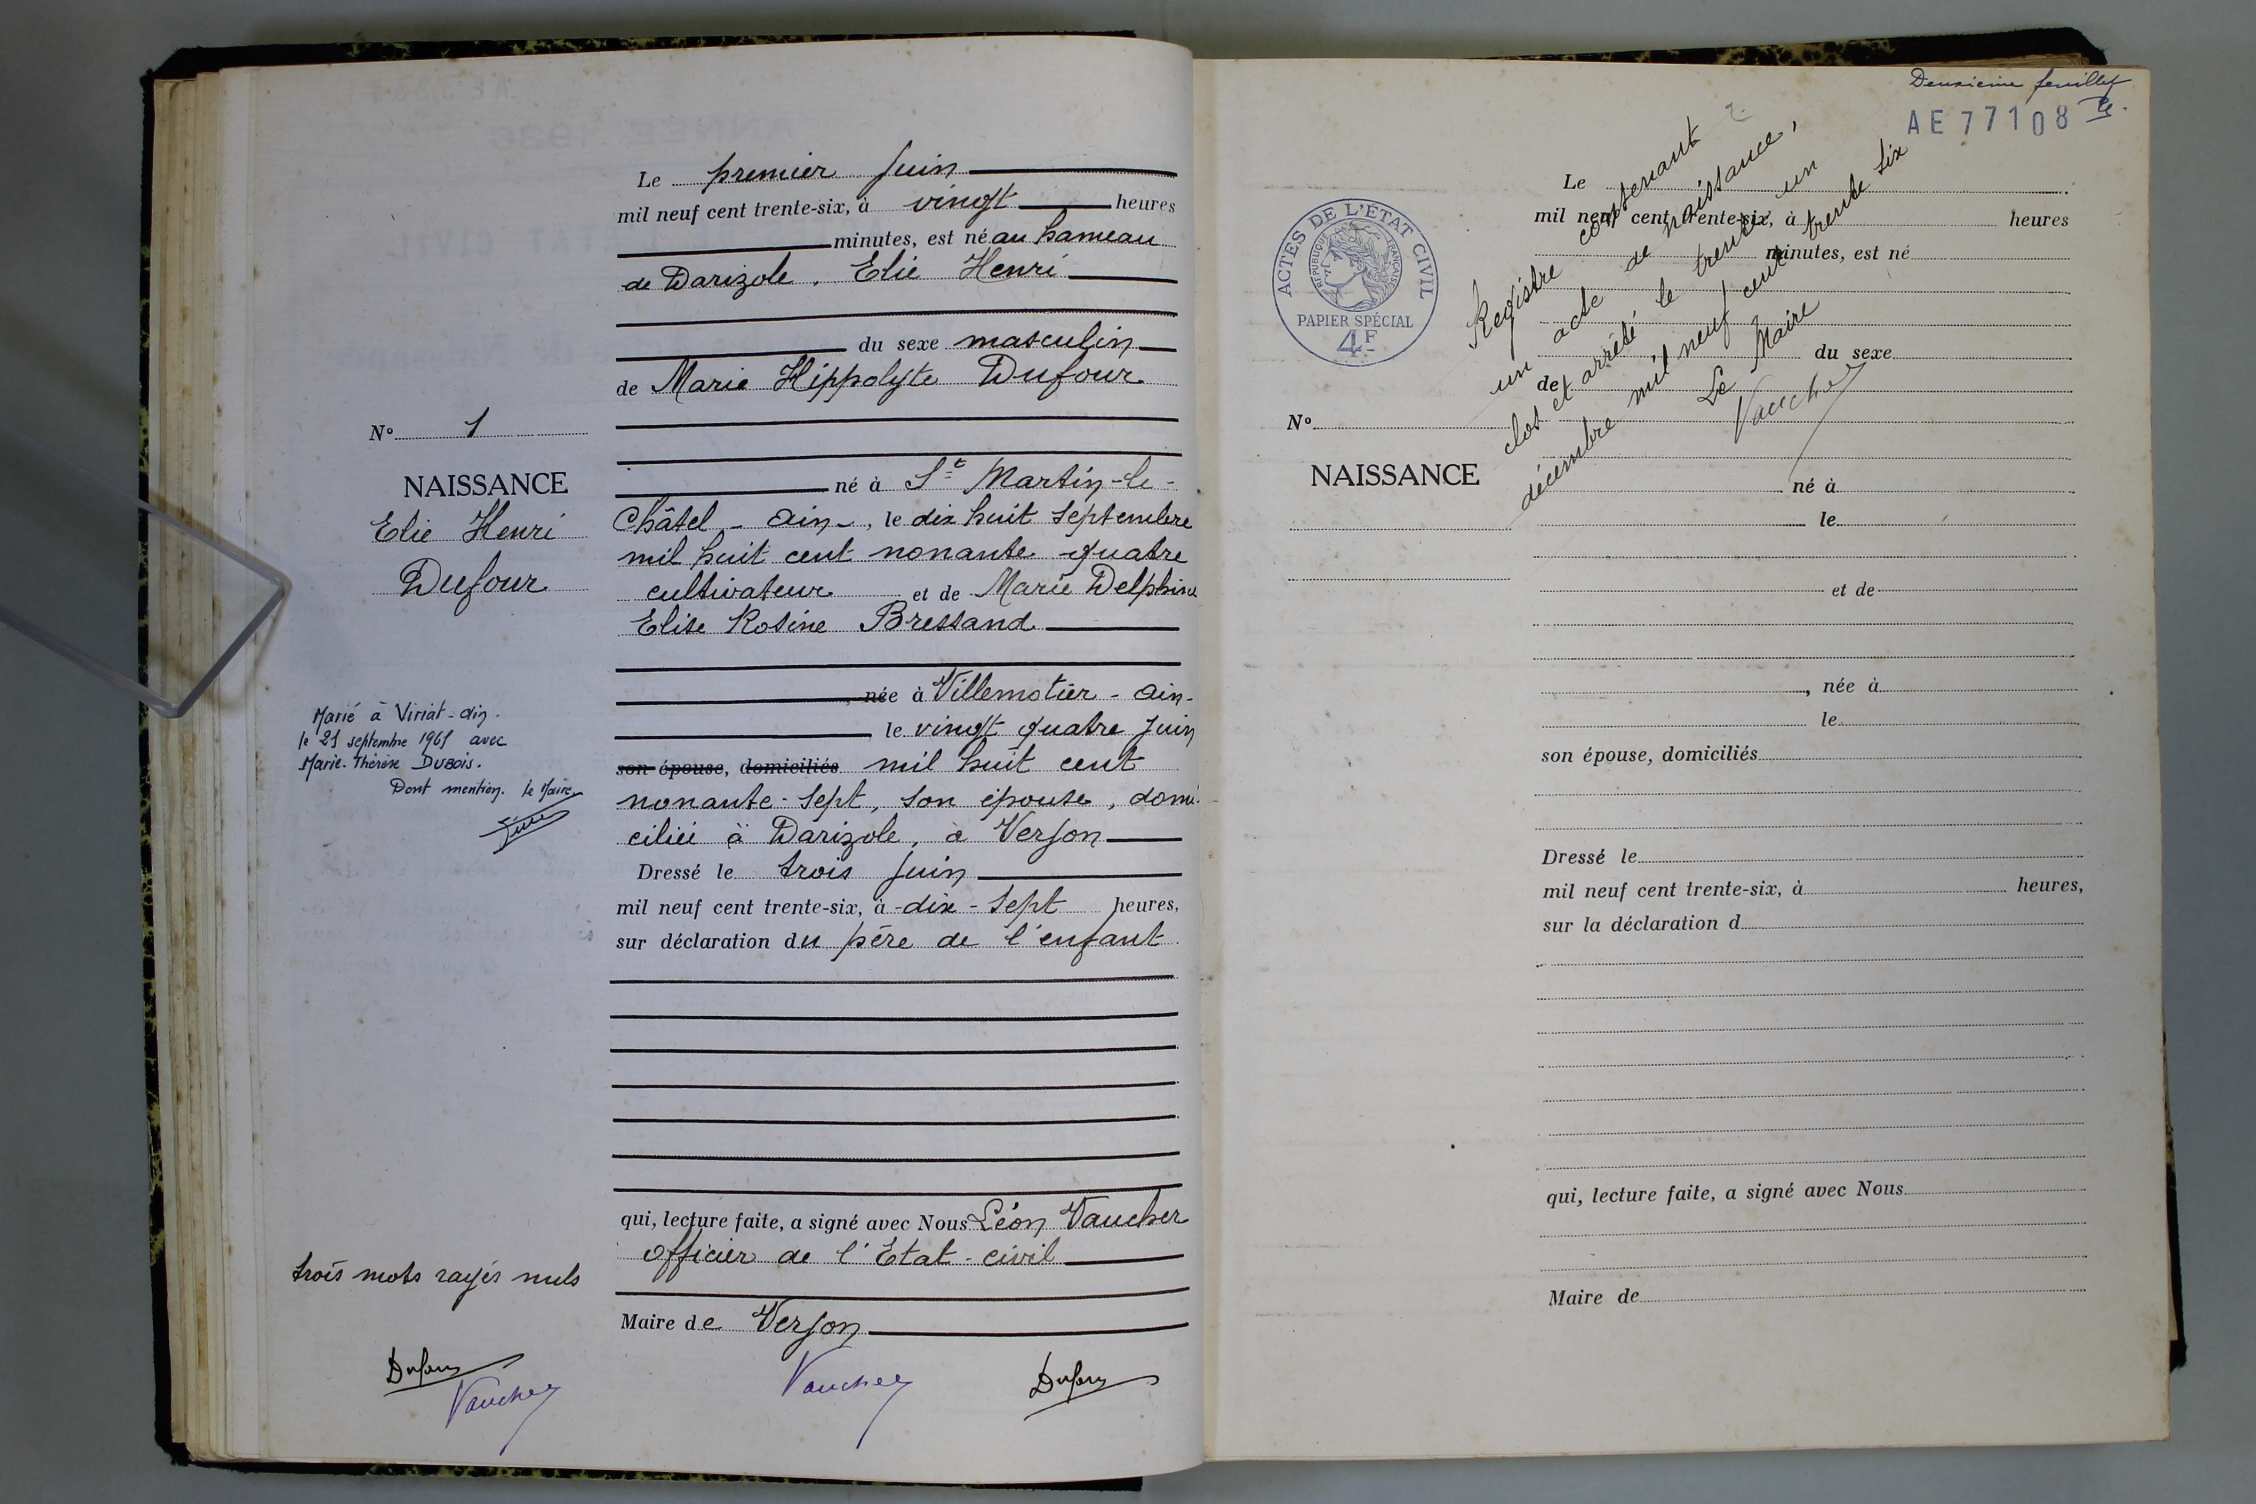 Le premier Juin
mil neuf cent trente-six, à vingt heures
minutes, est né au hameau
de Darizole. Elie Henri
du sexe masculin
de Marie Hippolyte Dufour
N° 1
né à St Martin-le-
NAISSANCE
Châtel - Ain -, le dix huit septembre
Elie Henri
mil huit cent nonante quatre
Dufour
cultivateur et de Marie Delphine
Elise Rosine Bressand
née à Villemotier - Ain -
le vingt quatre Juin
son épouse, domiciliés mil huit cent
nonante-sept, son épouse, domi-
ciliée à Darizole, à Verjon
Marié à Viriat-Ain.
le 21 septembre 1961 avec
Marie-Thérèse DUBOIS.
Dont mention. le Maire
Dressé le trois Juin
mil neuf cent trente-six, à dix-sept heures,
sur déclaration du père de l'enfant
qui, lecture faite, a signé avec Nous Léon Vaucher
officier de l'Etat-civil
trois mots rayés nuls
Maire de Verjon
Dufour
Vaucher
Vaucher
Dufour
Deuxième feuillet
AE77108
2
ACTES DE L'ÉTAT CIVIL
RÉPUBLIQUE FRANÇAISE
PAPIER SPÉCIAL
4F
Registre contenant
un acte de naissance,
clos et arrêté le trente un
décembre mil neuf cent trente six
Le Maire
Vaucher
Le
mil neuf cent trente-six, à heures
minutes, est né
du sexe
de
N°
NAISSANCE
né à
le
et de
, née à
le
son épouse, domiciliés
Dressé le
mil neuf cent trente-six, à heures,
sur la déclaration d
qui, lecture faite, a signé avec Nous
Maire de